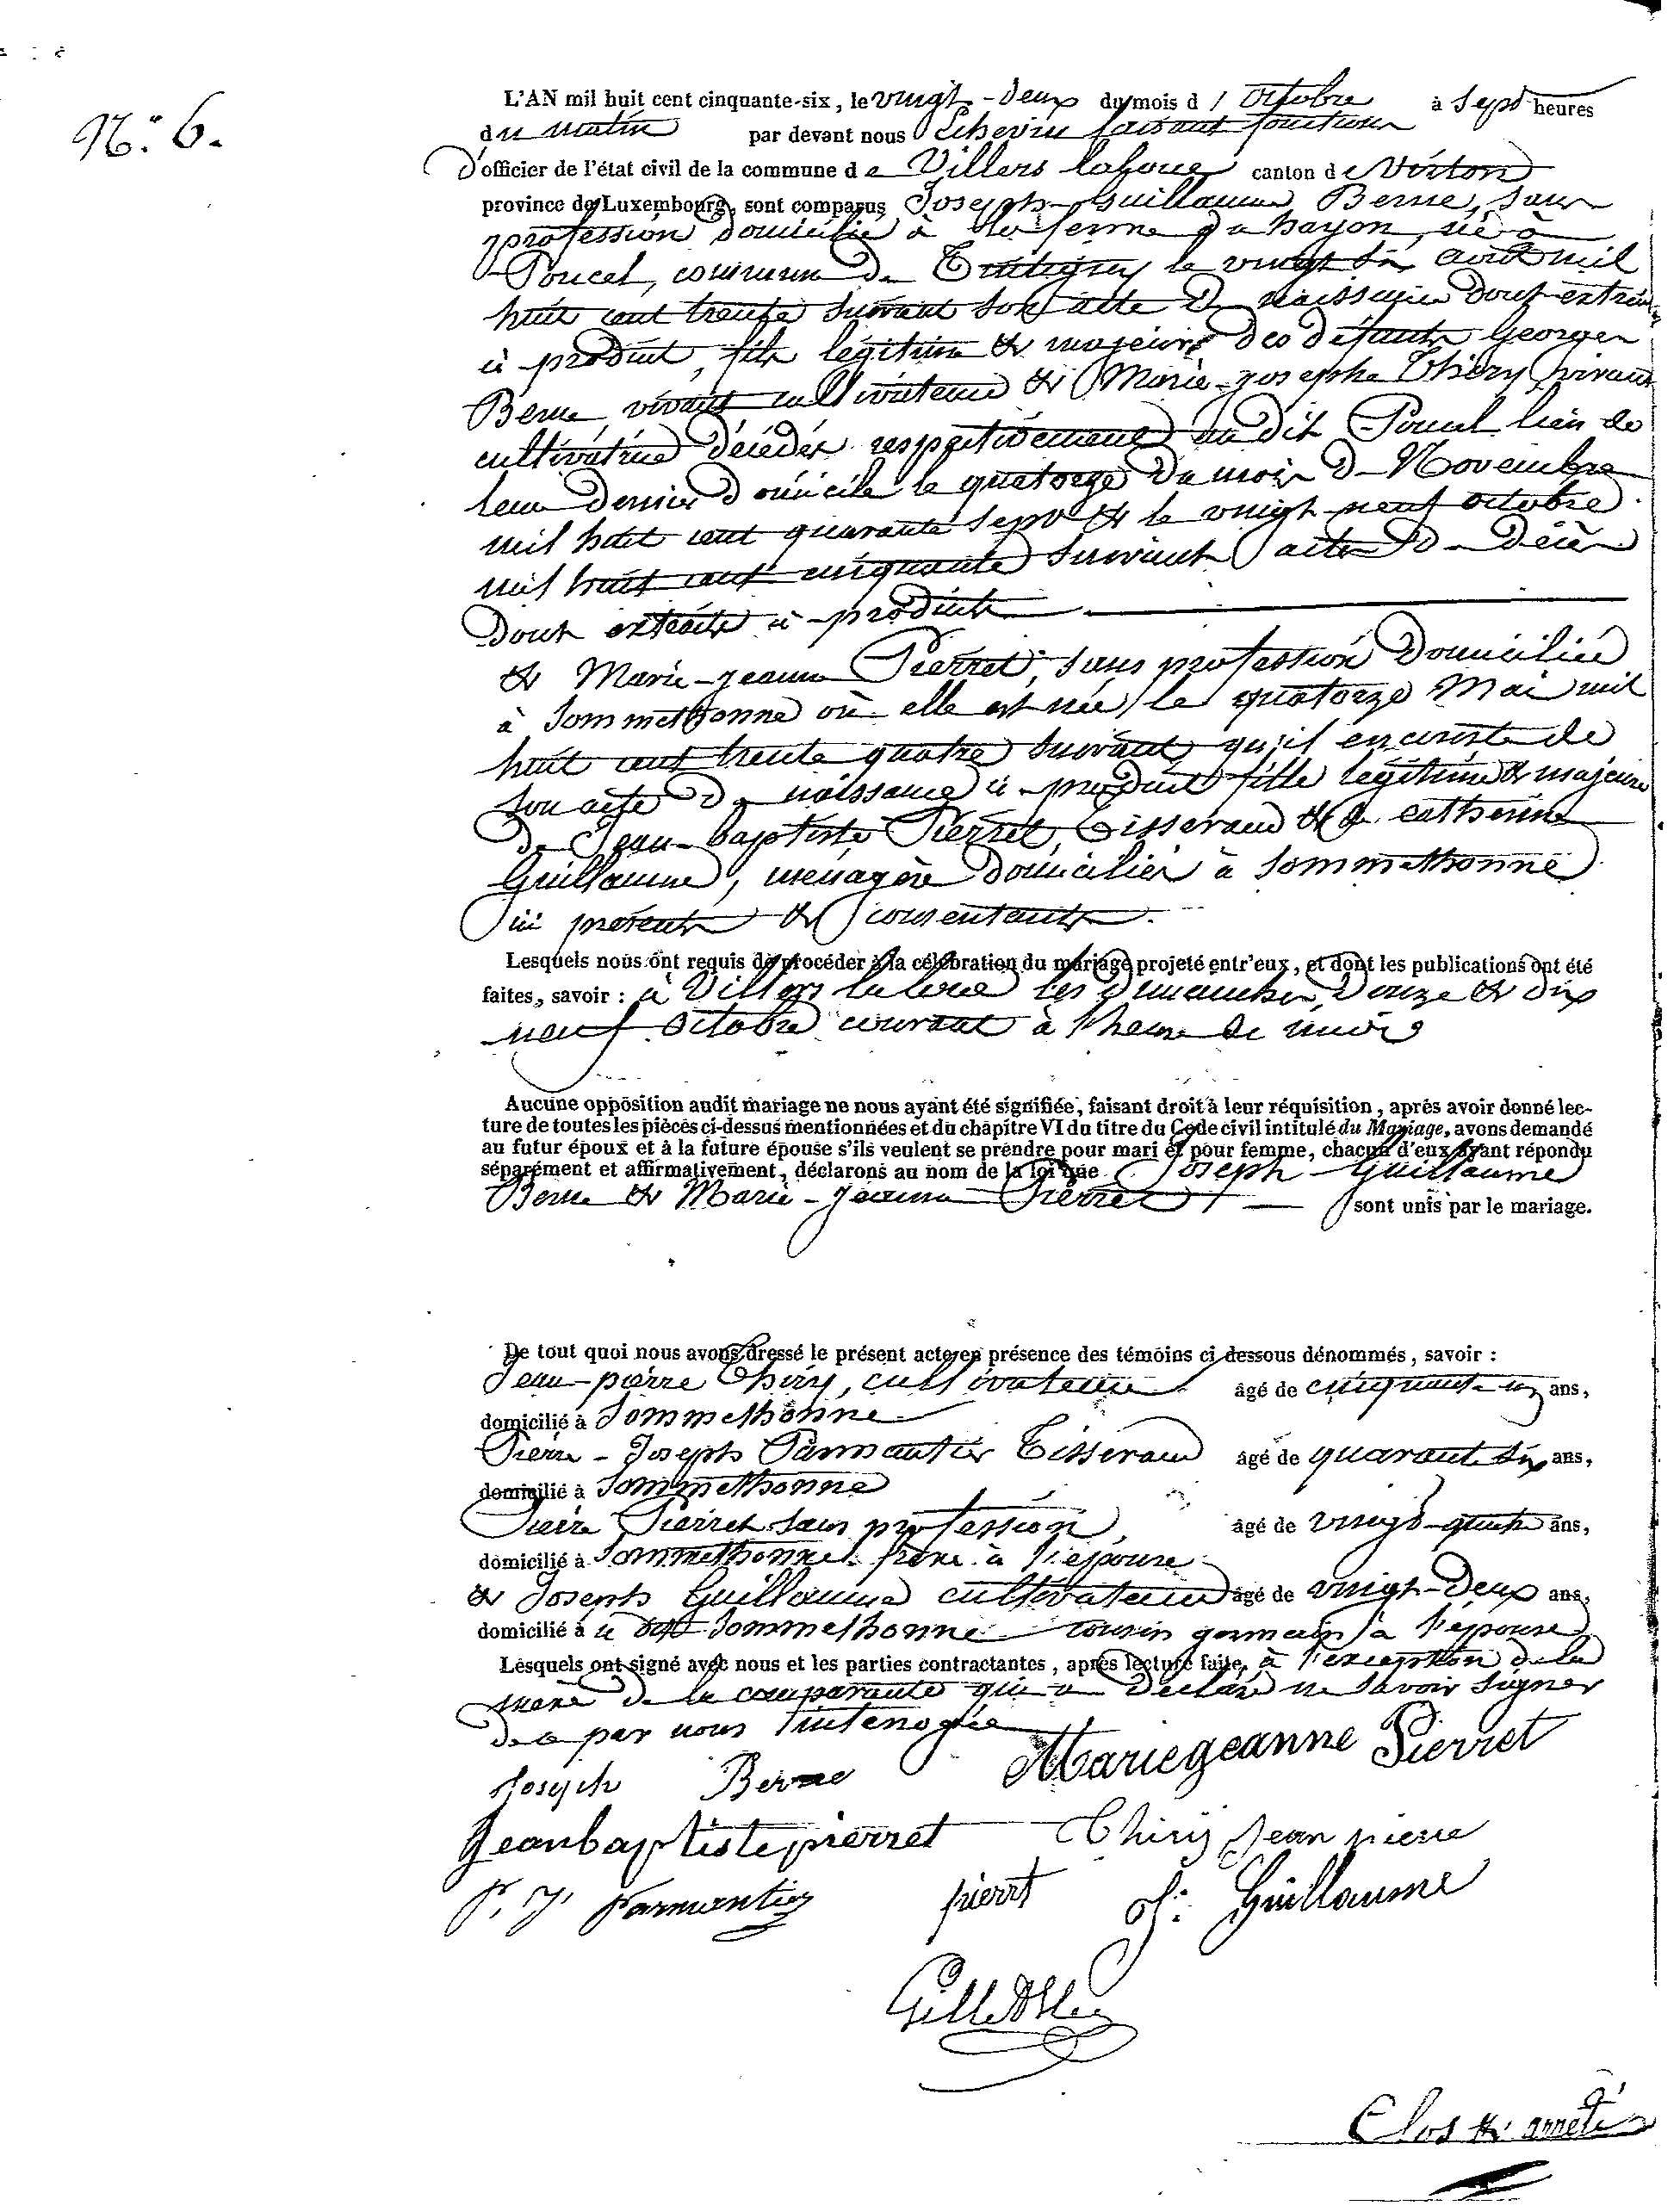 N.° 6.
L'AN mil huit cent cinquante-six, le vingt-deux du mois d'octobre à sept heures
du matin par devant nous Echevin faisant fonctions
d'officier de l'état civil de la commune de Villers laloue canton de Virton
province de Luxembourg, sont comparus Joseph-Guillaume Berne, sans
profession domicilié à la ferme du hayon, né à
Poncel, commune de Tintigny le vingt six août mil
huit cent trente suivant son acte de naissance dont extrait
ci-produit, fils légitime & majeur des défunts Georges
Berne, vivant cultivateur & Marie-josephe Thiery, vivant
cultivatrice décédés respectivement au dit Poncel lieu de
leur dernier domicile le quatorze du mois de Novembre
mil huit cent quarante sept & le vingt-neuf octobre
mil huit cent cinquante suivant actes de décès
dont extraits ci-produits
& Marie-jeanne Pierret, sans profession domiciliée
à Sommethonne où elle est née le quatorze Mai mil
huit cent trente quatre suivant qu'il en conste de
son acte de naissance ci-produit fille légitime & majeure
de Jean-baptiste Pierret, Tisserand & de catherine
Guillaume, ménagère domiciliés à Sommethonne
ici présents & consentants.
Lesquels nous ont requis de procéder à la célébration du mariage projeté entr'eux, et dont les publications ont été
faites, savoir : à Villers laloue les dimanches Douze & dix
neuf octobre courant à l'heure de midi
Aucune opposition audit mariage ne nous ayant été signifiée, faisant droit à leur réquisition, après avoir donné lec-
ture de toutes les pièces ci-dessus mentionnées et du chapitre VI du titre du Code civil intitulé du Mariage, avons demandé
au futur époux et à la future épouse s'ils veulent se prendre pour mari et pour femme, chacun d'eux ayant répondu
séparément et affirmativement, déclarons au nom de la loi que Joseph Guillaume
Berne & Marie-Jeanne Pierret sont unis par le mariage.
De tout quoi nous avons dressé le présent acte en présence des témoins ci dessous dénommés, savoir :
Jean-pierre Thiry, cultivateur âgé de cinquante un ans,
domicilié à Sommethonne
Pierre-Joseph Parmantier Tisserand âgé de quarante six ans,
domicilié à Sommethonne
Pierre Pierret sans profession, âgé de vingt-quatre ans,
domicilié à Sommethonne frère à l'épouse
& Joseph Guillaume cultivateur âgé de vingt-deux ans,
domicilié à ce dit Sommethonne cousin germain à l'épouse
Lesquels ont signé avec nous et les parties contractantes, après lecture faite, à l'exception de la
mère de la comparante qui a déclaré ne savoir signer
de ce par nous interrogée
Joseph Berne Mariegeanne Pierret
Jeanbaptiste pierret Thiry Jean pierre
P. J. Parmantier pierret J: Guillaume
Clos & arrêté